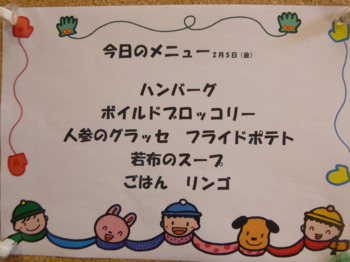 今日のメニュー 2月5日（金）
ハンバーグ
ボイルドブロッコリー
人参のグラッセ　フライドポテト
若布のスープ
ごはん　リンゴ